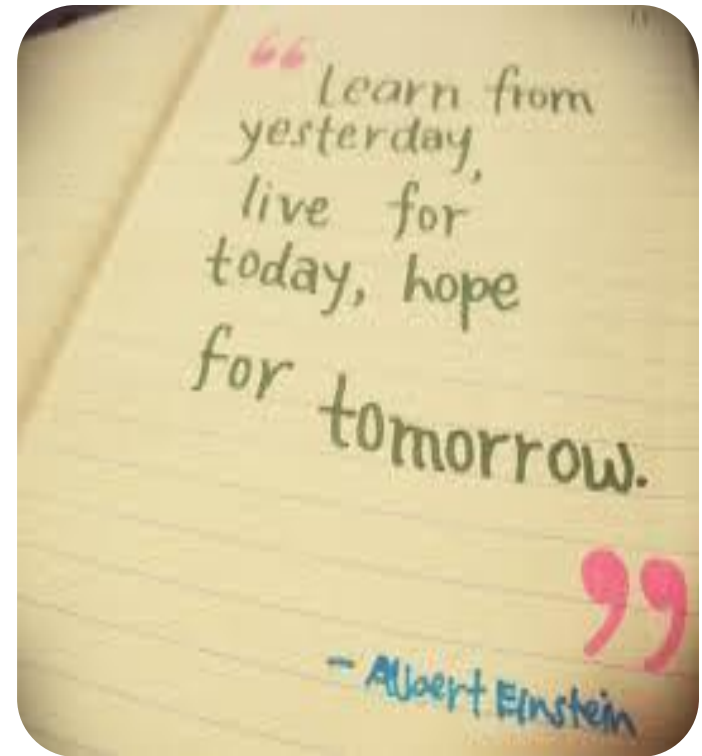 “ Learn from
yesterday,
live for
today, hope
for tomorrow.
”
- Albert Einstein